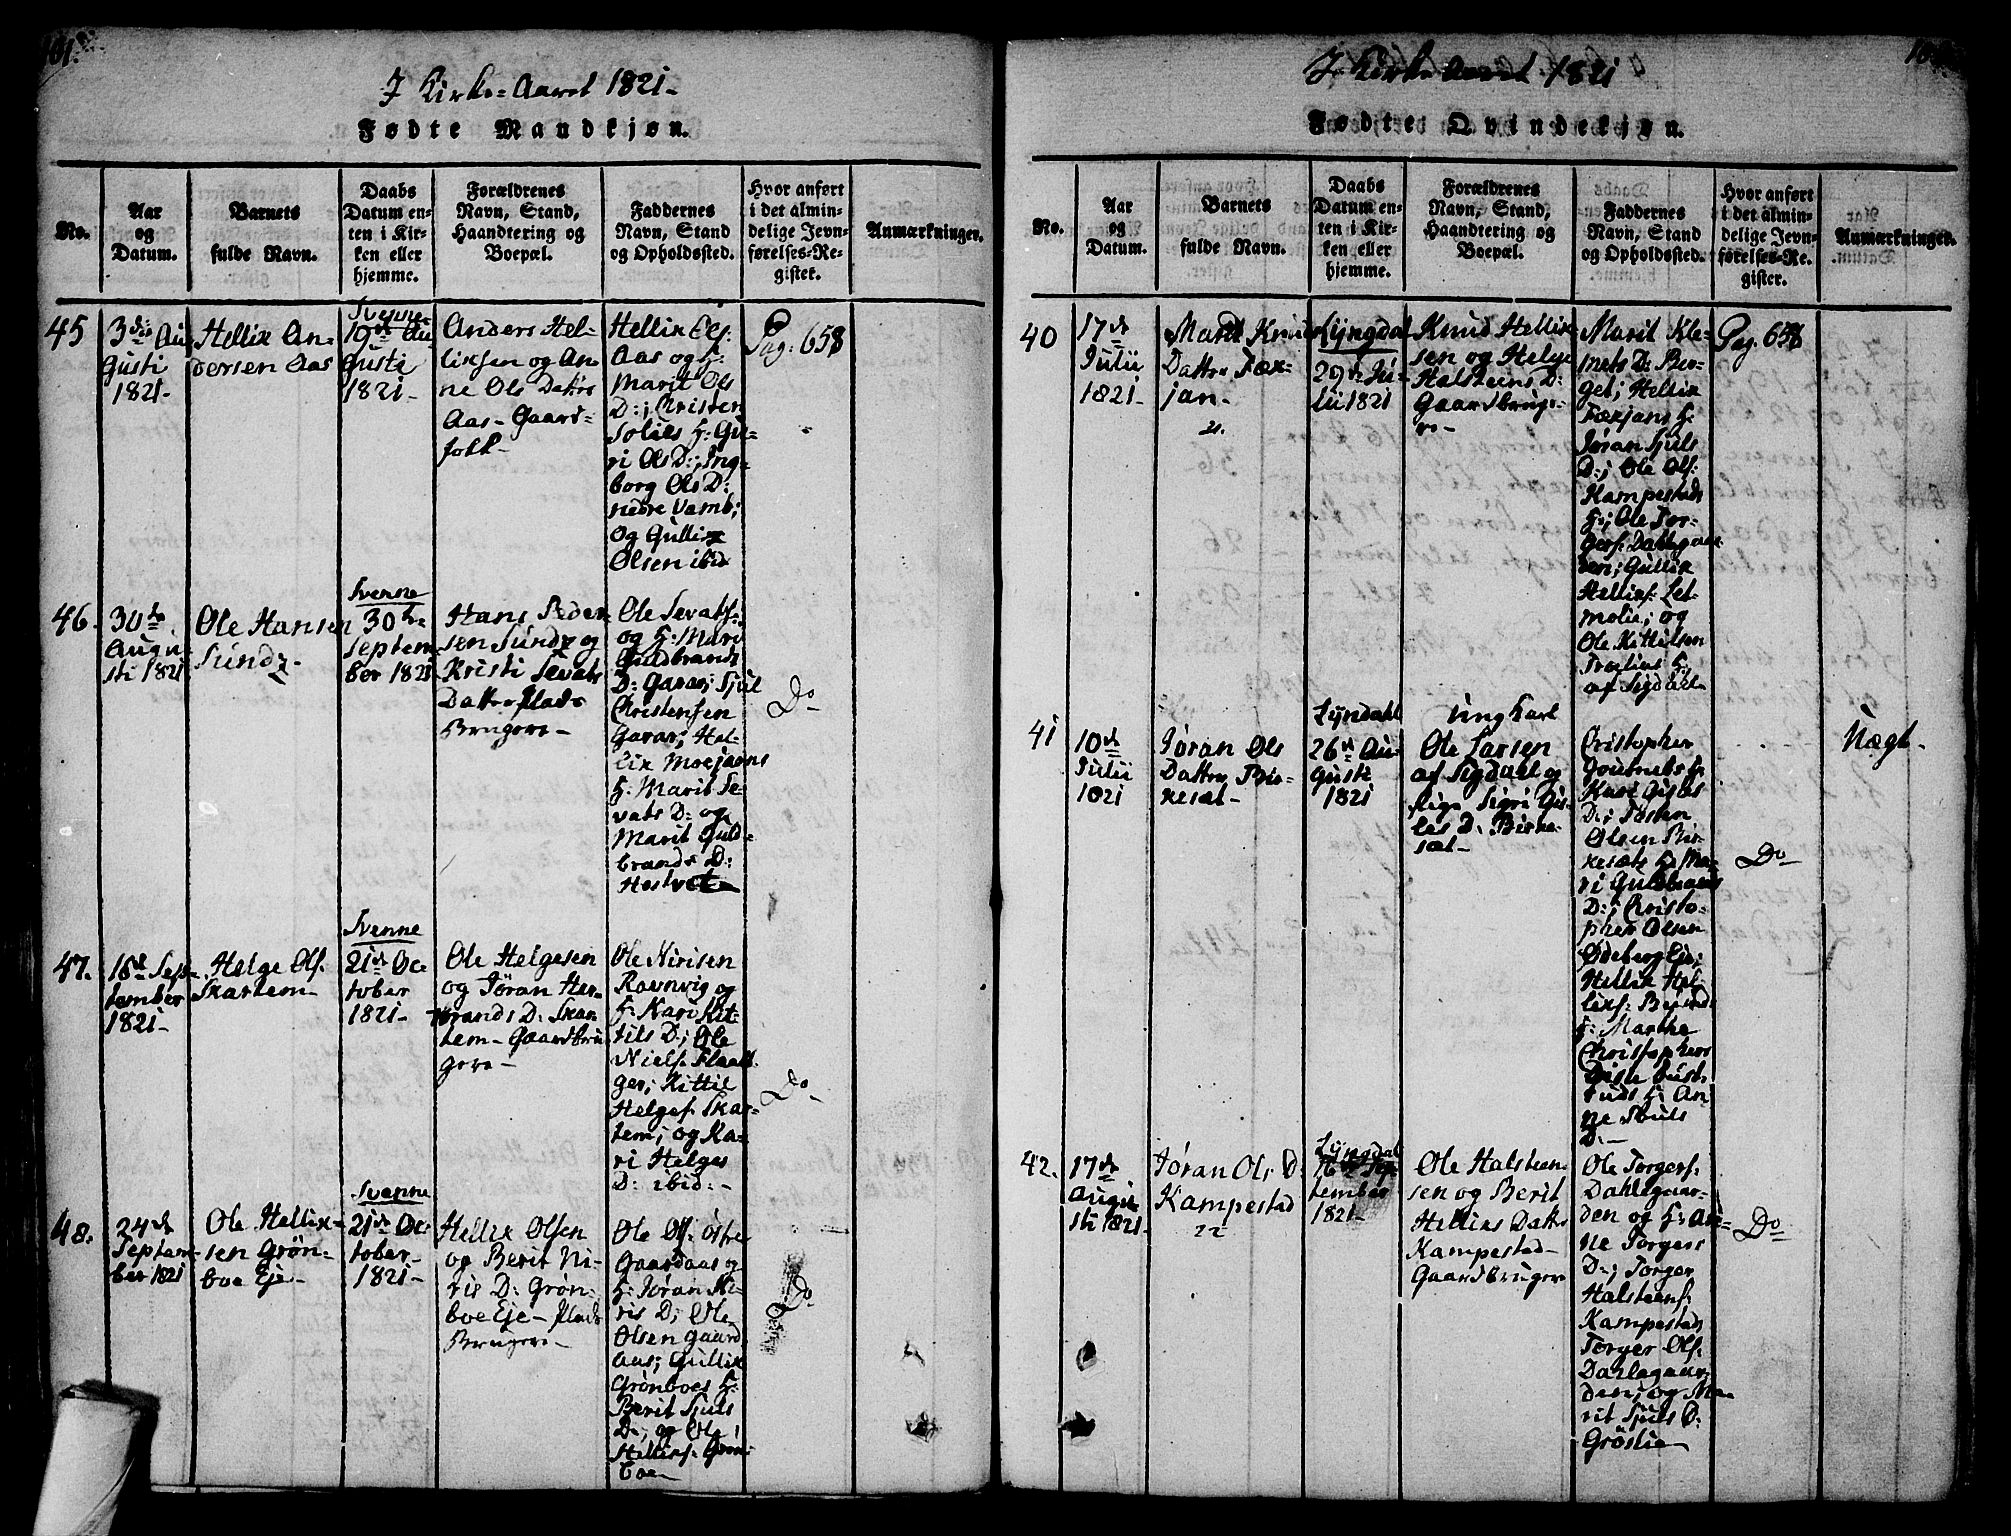 101.
I Kirke-Aaret 1821-
Fødte Mandkjøn.
No.
Aar
og
Datum.
Barnets
fulde Navn.
Daabs
Datum en-
ten i Kir-
ken eller
hjemme.
Forældrenes
Navn, Stand,
Haandtering og
Boepæl.
Faddernes
Navn, Stand
og Opholdssted.
Hvor anført
i det almin-
delige Jevn-
førelses-Re-
gister.
Anmærkninger.
45
3die Au
Gusti
1821-
Hellik An-
dersen Aas
Svenne
19de Au
Gusti
1821-
Anders Hel-
liksen og An-
ne Ols Datter
Aas- Gaard-
folk-
Hellik Ols:
Aas og H:
Marit Ols
D:; Christen
Solies H: Gu-
ri Ols D:; Ing-
borg Ols D:
nedre Vamb;
og Gullik
Olsen ibid
Pag: 658
46.
30te
Augu
sti 1821
Ole Hansen
Sund
Svenne
30te
Septem-
ber 1821
Hans Peder-
sen Sund og
Kristi Sevats
Datter Plads
Brugere-
Ole Sevats:
og H: Mari
Guldbrands
D: Garaas; Sjul
Christensen
Garaas; Hel-
lik Moejaens
H: Marit Se-
vats D: og
Marit Guld-
brands D:
Hostvet
Do
47.
16de Sep-
tember
1821-
Helge Ols.
Skartem-
Svenne
21de Oc
tober
1821-
Ole Helgesen
og Jøran Her-
brands D: Skar
tem- Gaardbru
gere-
Ole Nirisen
Ravnvig og
H: Kari Kit-
tils D:; Ole
Niels: Flaat
ger; Kittil
Helges: Skar-
tem; og Ka-
ri Helges
D: ibid:-
Do
48.
24de
Septem
ber 1821
Ole Hellik-
sen Grøn-
boe Eje-
Svenne
21de Oc
tober
1821-
Hellik Olsen
og Berit Ni-
ris D: Grøn-
boe Eje- Plads
Brugere-
Ole Ols: østre
Gaardaas og
H: Jøran Ni-
ris D; Ole
Olsen gaard
Aas; Gullik
Grønboes H:
Berit Sjuls
D:; og Ole
Helliks: Grøn-
boe-
Do
I Kirke-Aaret 1821
Fødte Qvindekjøn.
No.
Aar
og
Datum.
Barnets
fulde Navn.
Daabs
Datum en-
ten i Kir-
ken eller
hjemme.
Forældrenes
Navn, Stand,
Haandtering og
Boepæl.
Faddernes
Navn, Stand
og Opholdssted.
Hvor anført
i det almin-
delige Jevn-
førelses-Re-
gister.
Anmærkninger.
40
17de
Julii
1821-
Marit Knuds
Datter Fæk-
jan-
Lyngdal
29de Ju-
lii 1821
Knud Hellik-
sen og Helge
Halsteens D:
Gaardbruge-
re-
Marit Kle-
mets D: Ber-
get; Hellik
Fækjans H:
Jøran Sjuls
D:; Ole Ols:
Kampestads
H:; Ole Tor-
gers: Dahlegaar
den; Gullik
Helliks: Let-
molie; og
Ole Kittilsen
H:
af Sigdal
Pag: 658
41
10de
Julii
1821
Jøran Ols
Datter Bir-
kesæt-
Lyndahl
26de Au
gusti
1821
ungkarl
Ole Larsen
af Sigdal og
Pige Sigri Gis-
les D: Birke-
sæt-
Cristopher
H:
Kari Gisles
D:; Tosten
Olsen Bir-
kesæts H: Ma-
ri Guldbrands
D:; Christo-
pher Olsen
Ødeberg Eje;
Hellik Hel-
liks:
H: Marthe
Christophers
D
H: An-
ne Sjuls
D:-
Do
Uægt-
42.
17de
Augu
sti 1821
Jøran Ols D
Kampestad
Lyngdal
16de Sep
tember
1821-
Ole Halsteen
sen og Berit
Helliks Datter
Kampestad-
Gaardbrugere
Ole Torgers:
Dahlegaar-
den og H: An-
ne Torgers
D:; Torger
Halsteens:
Kampestad;
Torger Ols:
Dahlegaar-
den; og Ma-
rit Sjuls D:
Grøslie-
Do